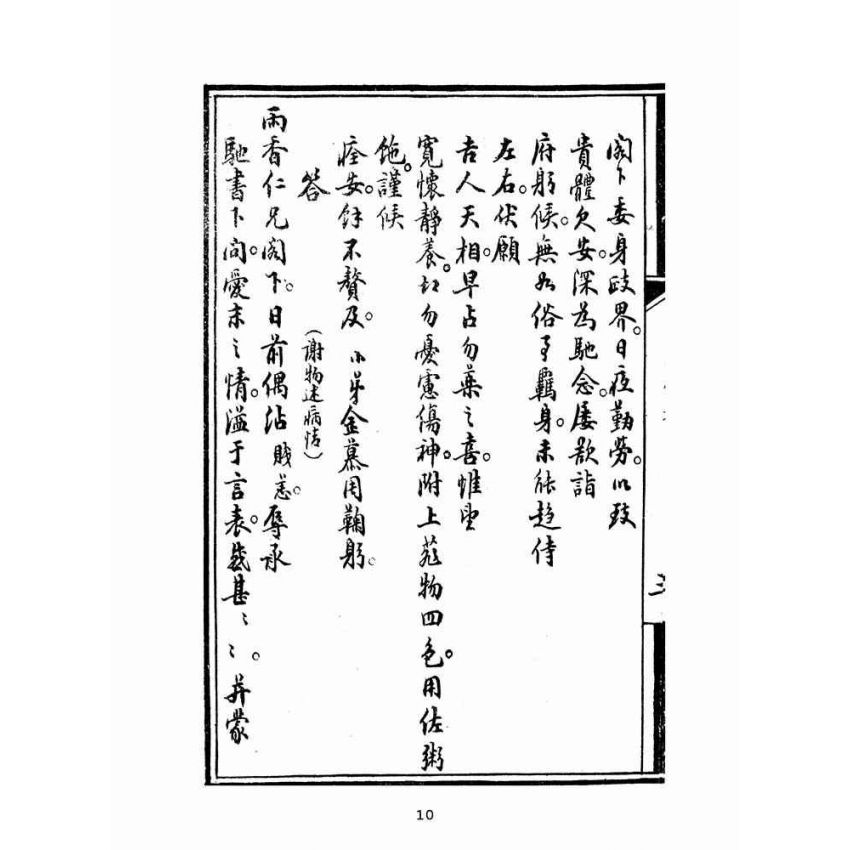 閣下委身政界。日夜勤勞。以致
貴體欠安。深為馳念。屢欲詣
府躬候。無如俗事羈身。未能趨侍
左右。伏願
吉人天相。早占勿藥之喜。惟望
寬懷靜養。切勿憂慮傷神。附上菲物四色。用佐粥
飽。謹候
痊安。餘不贅及。小弟金慕周鞠躬。
答
(謝物述病情)
雨香仁兄閣下。日前偶沾賤恙。辱承
馳書下問。愛末之情。溢于言表。感甚〻〻。并蒙
10